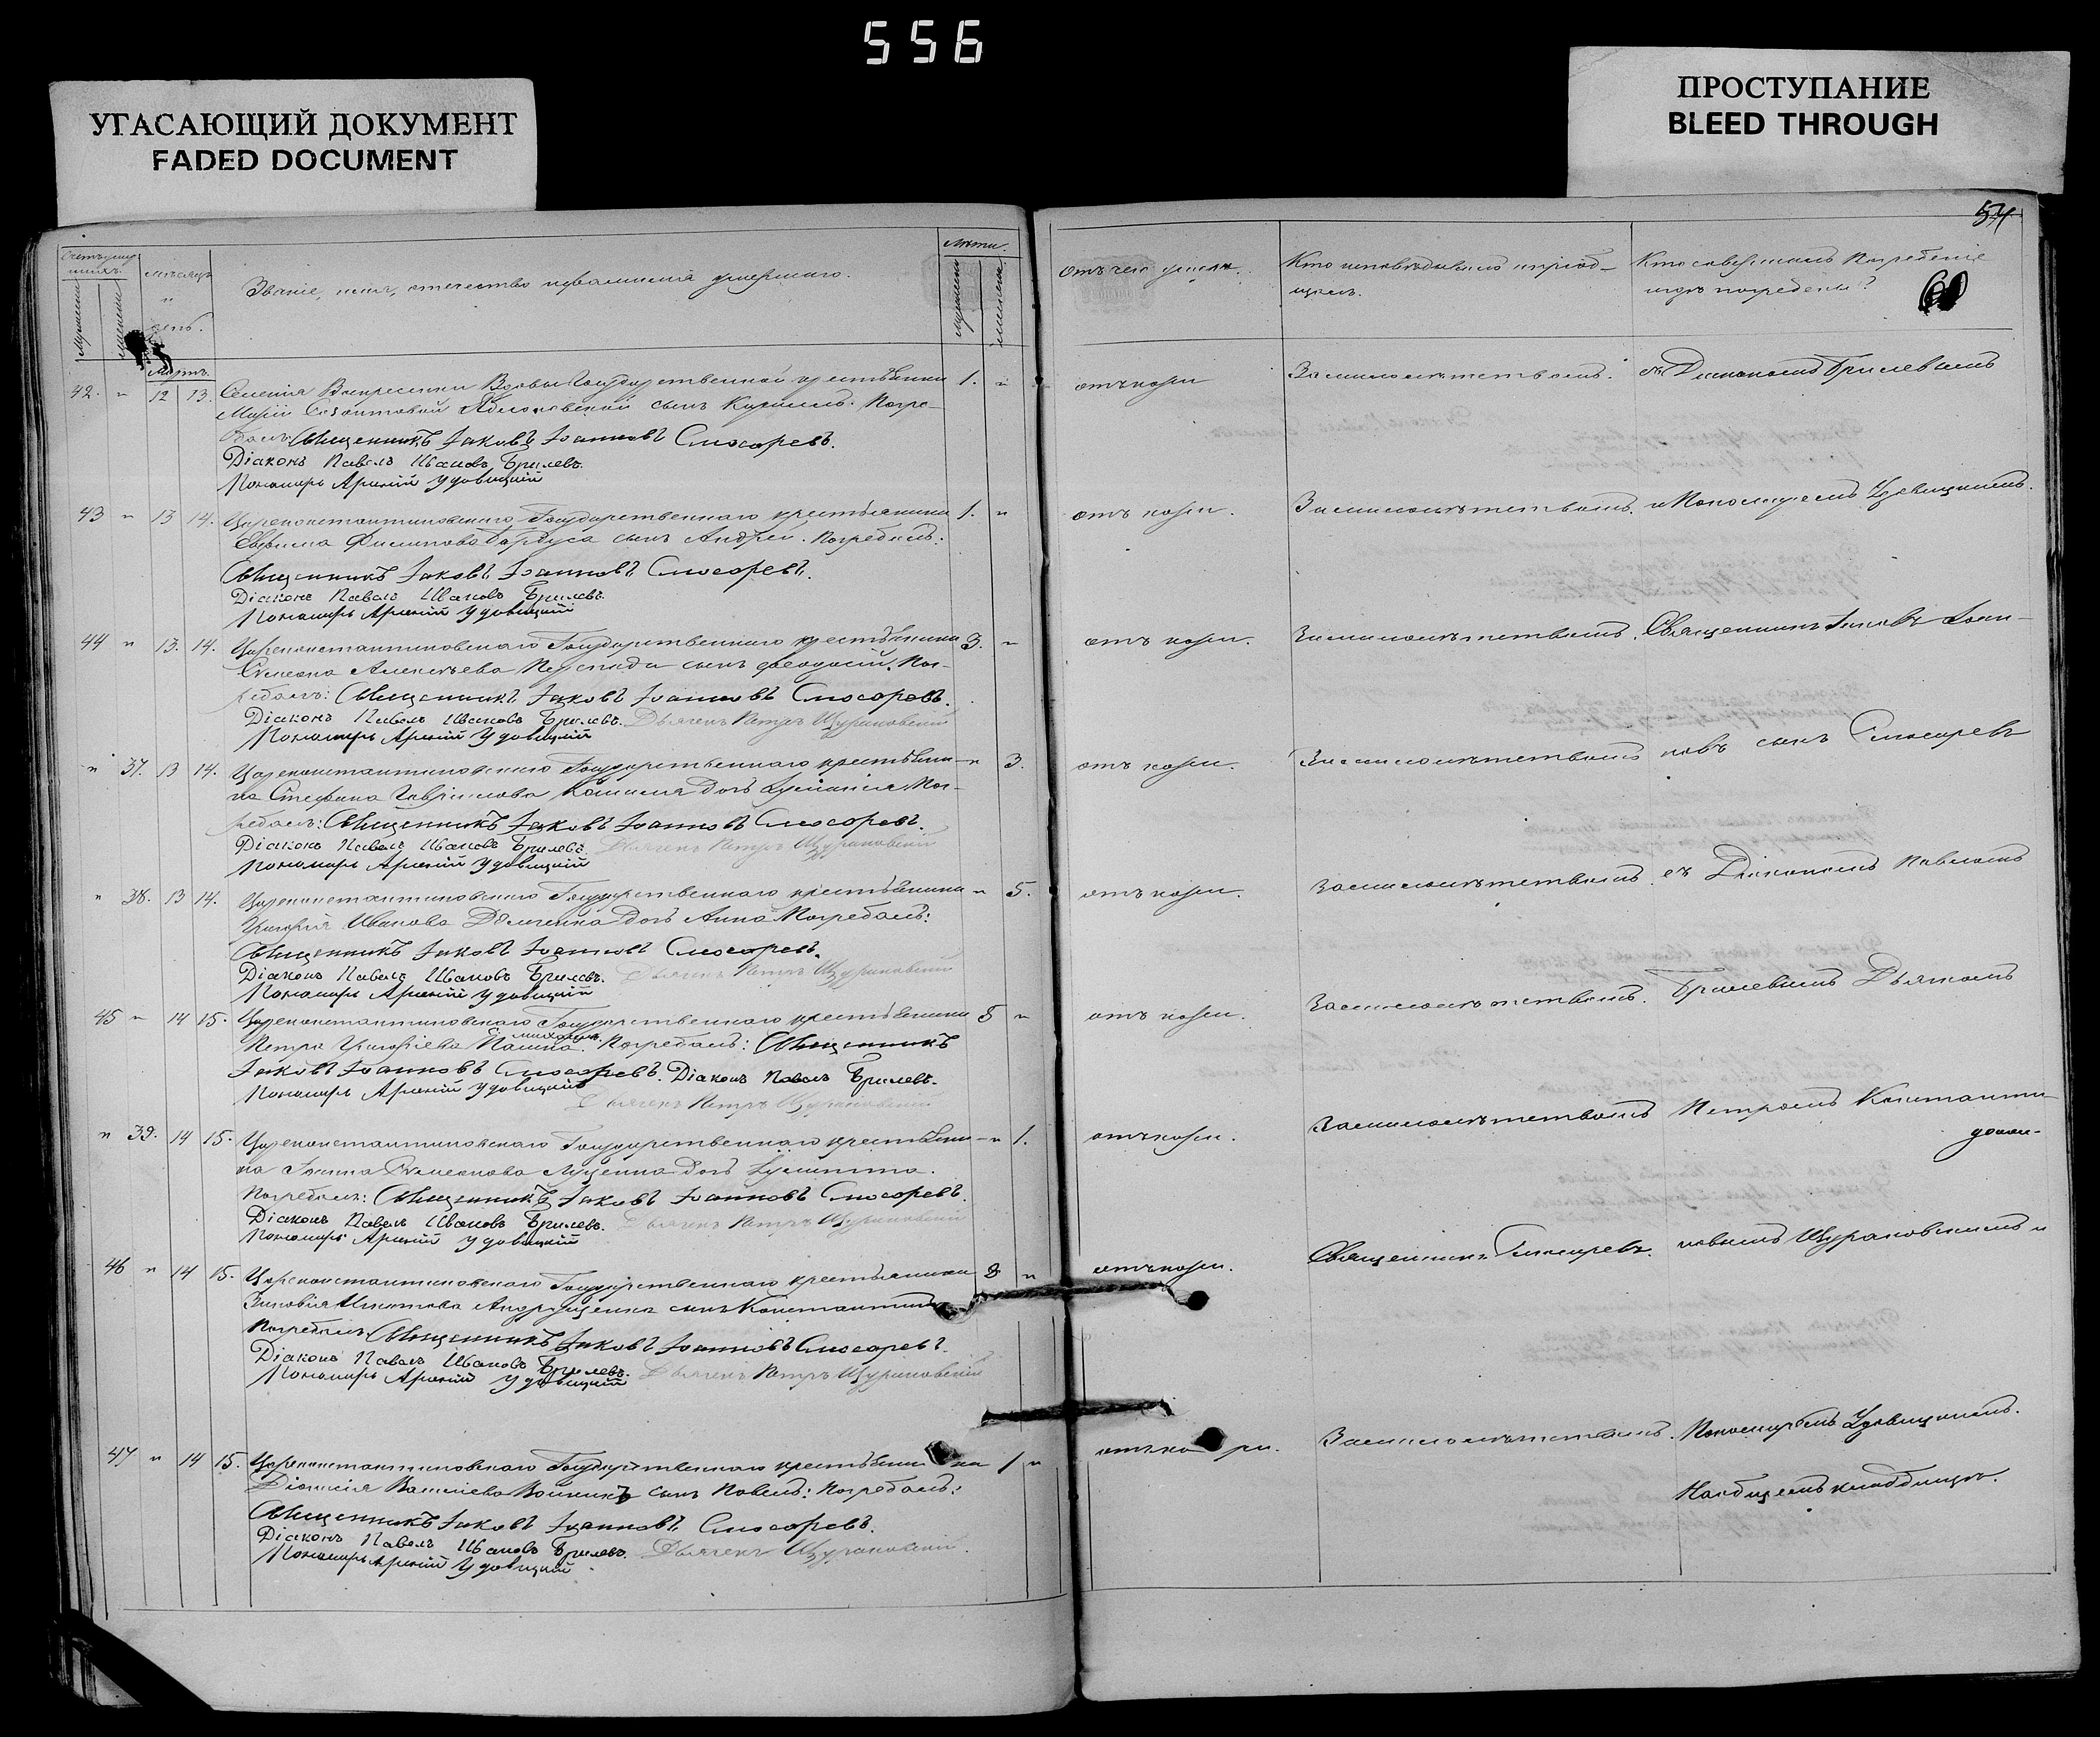 556
УГАСАЮЩИЙ ДОКУМЕНТ
FADED DOCUMENT
ПРОСТУПАНИЕ
BLEED THROUGH
54
60
Счетъ умер
шихъ.
Мужеска
Женска
Мѣсяцъ
и
день.
Званіе, имя, отечество и фамилія умершаго.
Лѣта.
Мужеска
Женска
Отъ чего умеръ.
Кто исповѣдывалъ и пріоб-
щалъ.
Кто совершалъ Погребеніе
и гдѣ погребены?
Мартъ.
42. " 12 13. Селенія Воскресенки Вдовы Государственной крестьянки 1. "
Маріи сынъ Кириллъ. Погре-
балъ: Священникъ Іаковъ Іоанновъ Слюсаревъ.
Діаконъ Павелъ Ивановъ Брилевъ.
Пономарь Арсеній Удовицкій
отъ кори
За малолѣтствомъ.
съ Діакономъ Брилевымъ
43 " 13 14. Цареконстантиновскаго Государственнаго крестьянина 1. "
Евфима Филипова Гардуса сынъ Андрей. Погребалъ:
Священникъ Іаковъ Іоанновъ Слюсаревъ.
Діаконъ Павелъ Ивановъ Брилевъ.
Пономарь Арсеній Удовицкій
отъ кори.
За малолѣтствомъ.
и Пономаремъ Удовицкимъ.
44 " 13. 14. Цареконстантиновскаго Государственнаго крестьянина 3. "
Симеона Алексѣева сынъ Феодосій. Пог-
ребалъ: Священникъ Іаковъ Іоанновъ Слюсаревъ.
Діаконъ Павелъ Ивановъ Брилевъ. Дьячекъ Петръ Щурановскій
Пономарь Арсеній Удовицкій
отъ кори.
За малолѣтствомъ.
Священникъ Іаковъ Іоан-
" 37. 13 14. Цареконстантиновскаго Государственнаго крестьяни- " 3.
на Стефана Гаврилова дочь Пог-
ребалъ: Священникъ Іаковъ Іоанновъ Слюсаревъ.
Діаконъ Павелъ Ивановъ Брилевъ. Дьячекъ Петръ Щурановскій
Пономарь Арсеній Удовицкій
отъ кори.
За малолѣтствомъ
новъ сынъ Слюсаревъ
" 38. 13 14. Цареконстантиновскаго Государственнаго крестьянина " 5.
Григорія Иванова дочь Анна Погребалъ:
Священникъ Іаковъ Іоанновъ Слюсаревъ.
Діаконъ Павелъ Ивановъ Брилевъ. Дьячекъ Петръ Щурановскій
Пономарь Арсеній Удовицкій
отъ кори.
За малолѣтствомъ.
съ Діакономъ Павломъ
45 " 14 15. Цареконстантиновскаго Государственнаго крестьянина 5 "
Петра Григоріева Погребалъ: Священникъ
Іаковъ Іоанновъ Слюсаревъ. Діаконъ Павелъ Брилевъ.
Пономарь Арсеній Удовицкій
Дьячекъ Петръ Щурановскій
отъ кори.
За малолѣтствомъ.
Брилевымъ Дьячкомъ
" 39. 14 15. Цареконстантиновскаго Государственнаго крестьяни- " 1.
на Іоанна Симеонова Луценка дочь
Погребалъ: Священникъ Іаковъ Іоанновъ Слюсаревъ.
Діаконъ Павелъ Ивановъ Брилевъ. Дьячекъ Петръ Щурановскій
Пономарь Арсеній Удовицкій
отъ кори.
За малолѣтствомъ
Петромъ Константи-
46 " 14 15. Цареконстантиновскаго Государственнаго крестьянина 3 "
Зиновія Никитова Андрущенка сынъ Константинъ
Погребалъ: Священникъ Іаковъ Іоанновъ Слюсаревъ.
Діаконъ Павелъ Ивановъ Брилевъ. Дьячекъ Петръ Щурановскій
Пономарь Арсеній Удовицкій
отъ кори.
Священникъ Слюсаревъ.
новымъ Щурановскимъ и
47 " 14 15. Цареконстантиновскаго Государственнаго крестьянина 1 "
Діонисія Василіева сынъ Павелъ: Погребалъ:
Священникъ Іаковъ Іоанновъ Слюсаревъ.
Діаконъ Павелъ Ивановъ Брилевъ. Дьячекъ Щурановскій.
Пономарь Арсеній Удовицкій
отъ кори.
За малолѣтствомъ.
Пономаремъ Удовицкимъ.
На общемъ кладбищѣ.